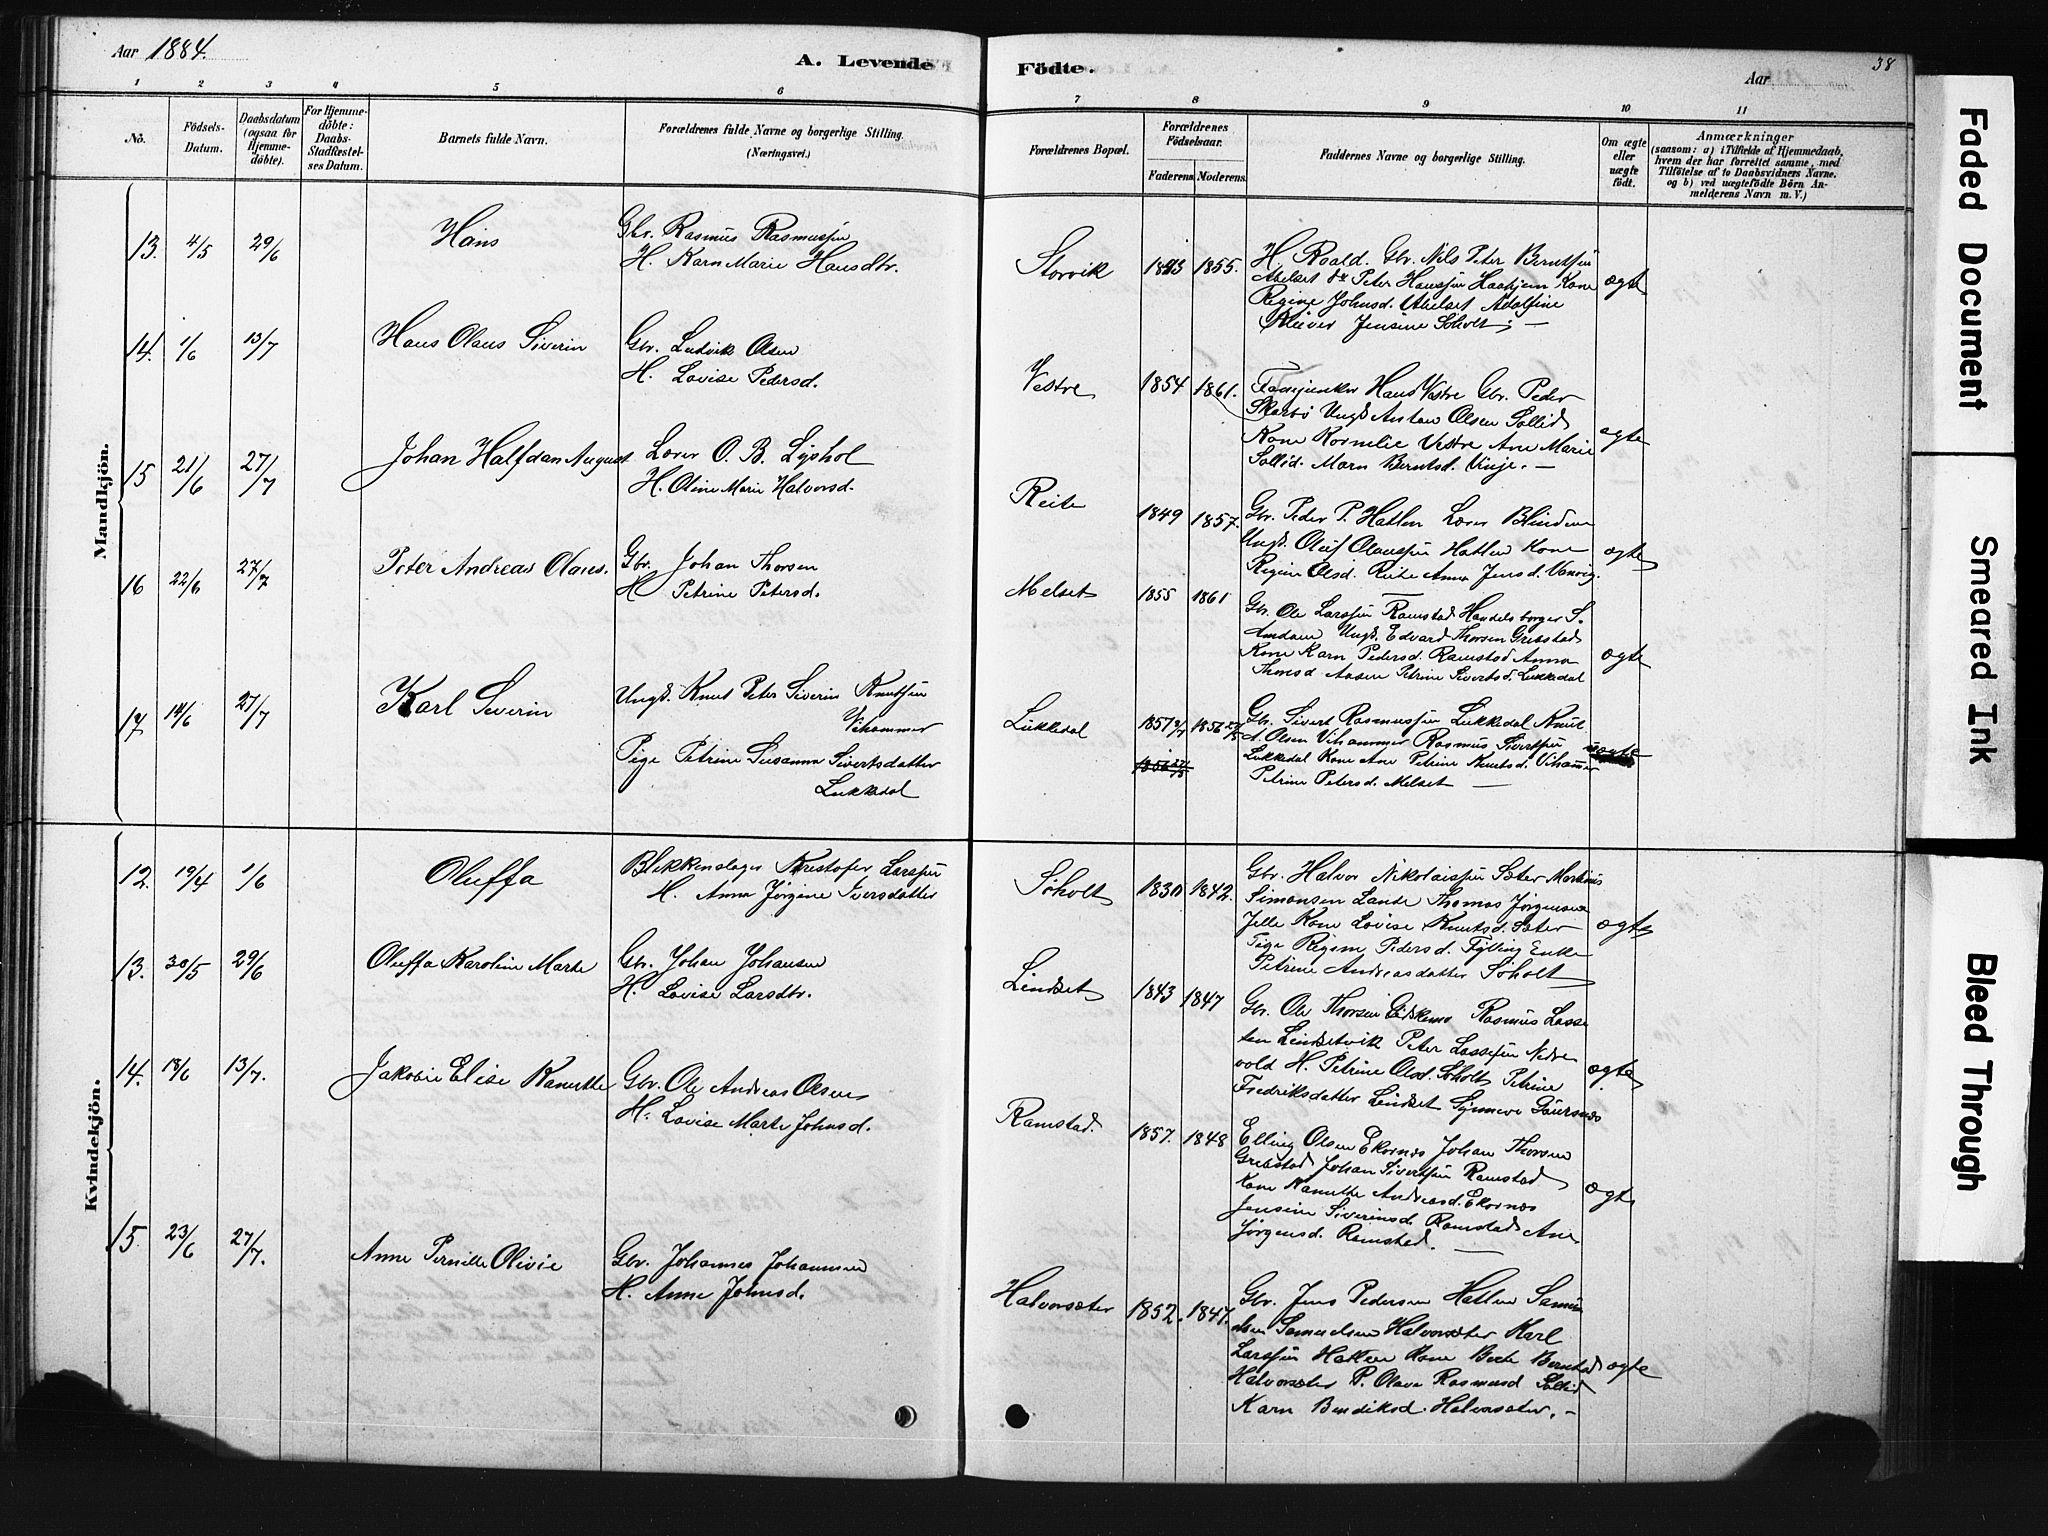 Aar 1884.
A. Levende
Födte.
Aar
38
1 2 3 4 5 6 7 8 9 10 11
No.
Födsels-
Datum.
Daabsdatum
(ogsaa for
Hjemme-
döbte).
For Hjemme-
döbte:
Daabs-
Stadfæstel-
ses Datum.
Barnets fulde Navn.
Forældrenes fulde Navne og borgerlige Stilling.
(Næringsvei.)
Forældrenes Bopæl.
Forældrenes
Födselsaar.
Faderens Moderens.
Faddernes Navne og borgerlige Stilling.
Om ægte
eller
uægte
födt.
Anmærkninger
(saasom: a) i Tilfælde af Hjemmedaab,
hvem der har forrettet samme, med
Tilföielse af to Daabsvidners Navne.
og b) ved uægtefödte Börn An-
melderens Navn m. V.)
Mandkjön.
13. 4/5 29/6 Hans
Gbr. Rasmus Rasmussen
H. Karn Marie Hansdtr.
Storvik 1855.
H. Roald. Gbr. Nils Peter Berntsen
Peter Hanssen Kone
Regine Johnsd. Adolfine
Jensine Söholt. —
ægte
14. 1/6 13/7 Hans Olaus Siverin
Gbr. Ludvik Olsen
H. Lovise Pedersd.
Vestre 1854 1861.
Hans Vestre Gbr. Peder
Skarbö Ungk. Anton Olsen Sollid
Kone Kornelie Vestre Ane Marie
Sollid. Marn Berntsd. Vinje. —
ægte
15 21/6 27/7 Johan Halfdan August
Lærer O. B. Lyshol
H. Oline Marie Halvorsd.
Reite 1849 1857.
Gbr. Peder P. Hatlen Lærer Blindem
Ungk. Oluf Olaussen Hatlen Kone
Regine Olsd. Reite Anna Jensd. Vanvig.
ægte
16 22/6 27/7 Peter Andreas Olaus.
Gbr. Johan Thorsen
H Petrine Petersd.
Melset 1855 1861
Gbr. Ole Larssen Ramstad Handelsborger S.
Amdam Ungk. Edvard Thorsen Grebstad
Kone Karn Pedersd. Ramstad Anna
Thorsd Aasen Petrine Sivertsd. Lukkedal
ægte
17 14/6 27/7 Karl Severin
Ungk. Knut Peter Siverin Knutsen
Vihammer
Pige Petrine Susanna Sivertsdatter
Lukkedal
Lukkedal 1856
Gbr. Sivert Rasmussen Lukkedal Knut
A. Olsen Vihammer Rasmus Sivertsen
Lukkedal Kone Ane Petrine Knutsd. Vihammer
Petrine Petersd. Melset —
uægte
Kvindekjön.
12. 19/4 1/6 Oluffa
Blikkenslager Kristofer Larssen
H. Anna Jörgine Iversdatter
Söholt 1830 1842.
Gbr. Halvor Nikolaissen Sæter Martinus
Simonsen Lande Thomas Jörgensen
Jelle Kone Lovise Knutsd. Sæter
Pige Regine Pedersd. Fylling Enke
Petrine Andreasdatter Söholt
ægte
13. 30/5 29/6 Oluffa Karoline Marte
Gbr. Johan Johansen
H. Lovise Larsdtr.
Lindset 1843 1847
Gbr. Ole Thorsen Rasmus Lasse
sen Lindsetvik Peter Lassesen Nedre
vold H. Petrine Olsd. Söholt Petrine
Fredriksdatter Lindset Synneve
ægte
14. 18/6 13/7. Jakobie Elise Kanutte
Gbr. Ole Andreas Olsen
H. Lovise Marte Johnsd.
Ramstad. 1857. 1848
Elling Olsen Ekornes Johan Thorsen
Grebstad Johan Sivertsen Ramstad
Kone Kanutte Andreasd. Ekornes
Jensine Siverinsd. Ramstad Ane
Jörgensd. Ramstad. —
ægte
15. 23/6 27/7. Anne Pernille Olivie
Gbr. Johannes Johannsen
H. Anne Johnsd.
Halvorsæter 1852. 1847.
Gbr. Jens Pedersen Hatlen Samu
Samuelsen Halvorsæter Karl
Larssen Hatlen Kone Berte Berntsd
Halvorsæter P. Olava Rasmusd Sollid
Karn Bendiksd. Halvorsæter. —
ægte
Faded Document
Smeared Ink
Bleed Through